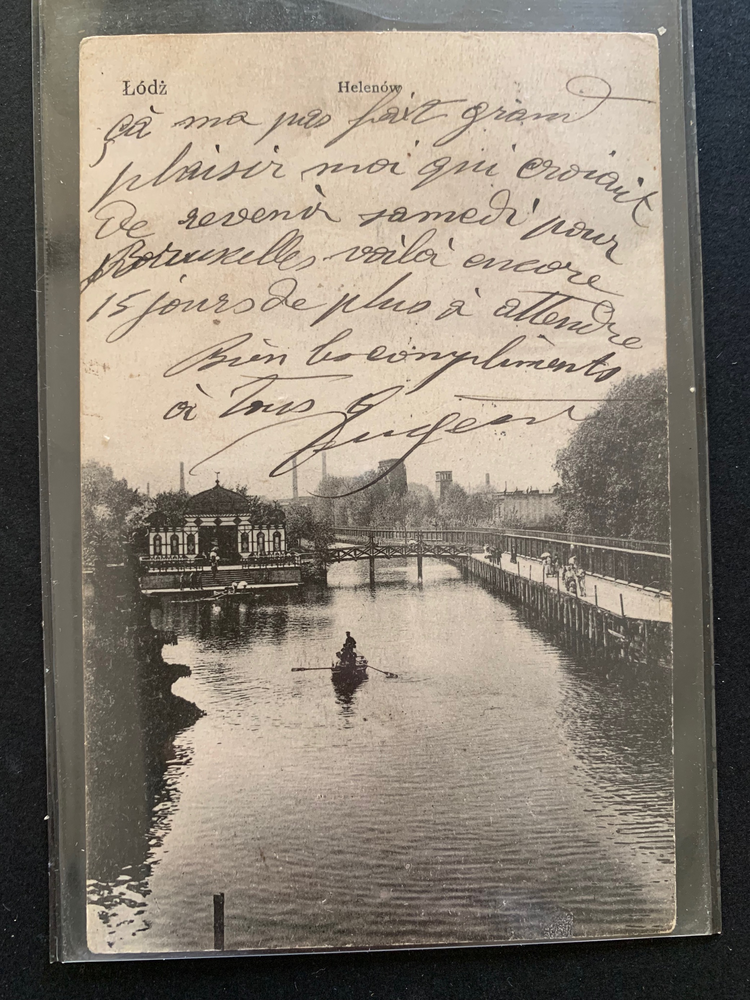 Łódź
Helenów
çà ma pas fait grand
plaisir moi qui croiait
de revenir samedi pour
Brruxelles voilà encore
15 jours de plus à attendre
Bien les compliments
à Tous